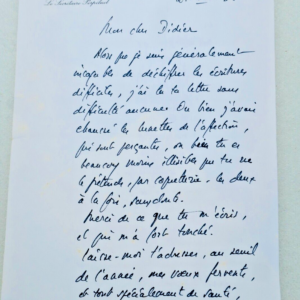 Le Secrétaire Perpétuel
Mon cher Didier
Alors que je suis généralement
incapable de déchiffrer les écritures
difficiles, j'ai lu ta lettre sans
difficulté aucune. Ou bien j'avais
chaussé les lunettes de l'affection,
qui sont perçantes, ou bien tu es
beaucoup moins illisible que tu ne
le prétends, par coquetterie. Les deux
à la fois, sans doute.
Merci de ce que tu m'écris,
et qui m'a fort touché.
Laisse-moi t'adresser, au seuil
de l'année, mes vœux fervents,
et tout spécialement de santé,